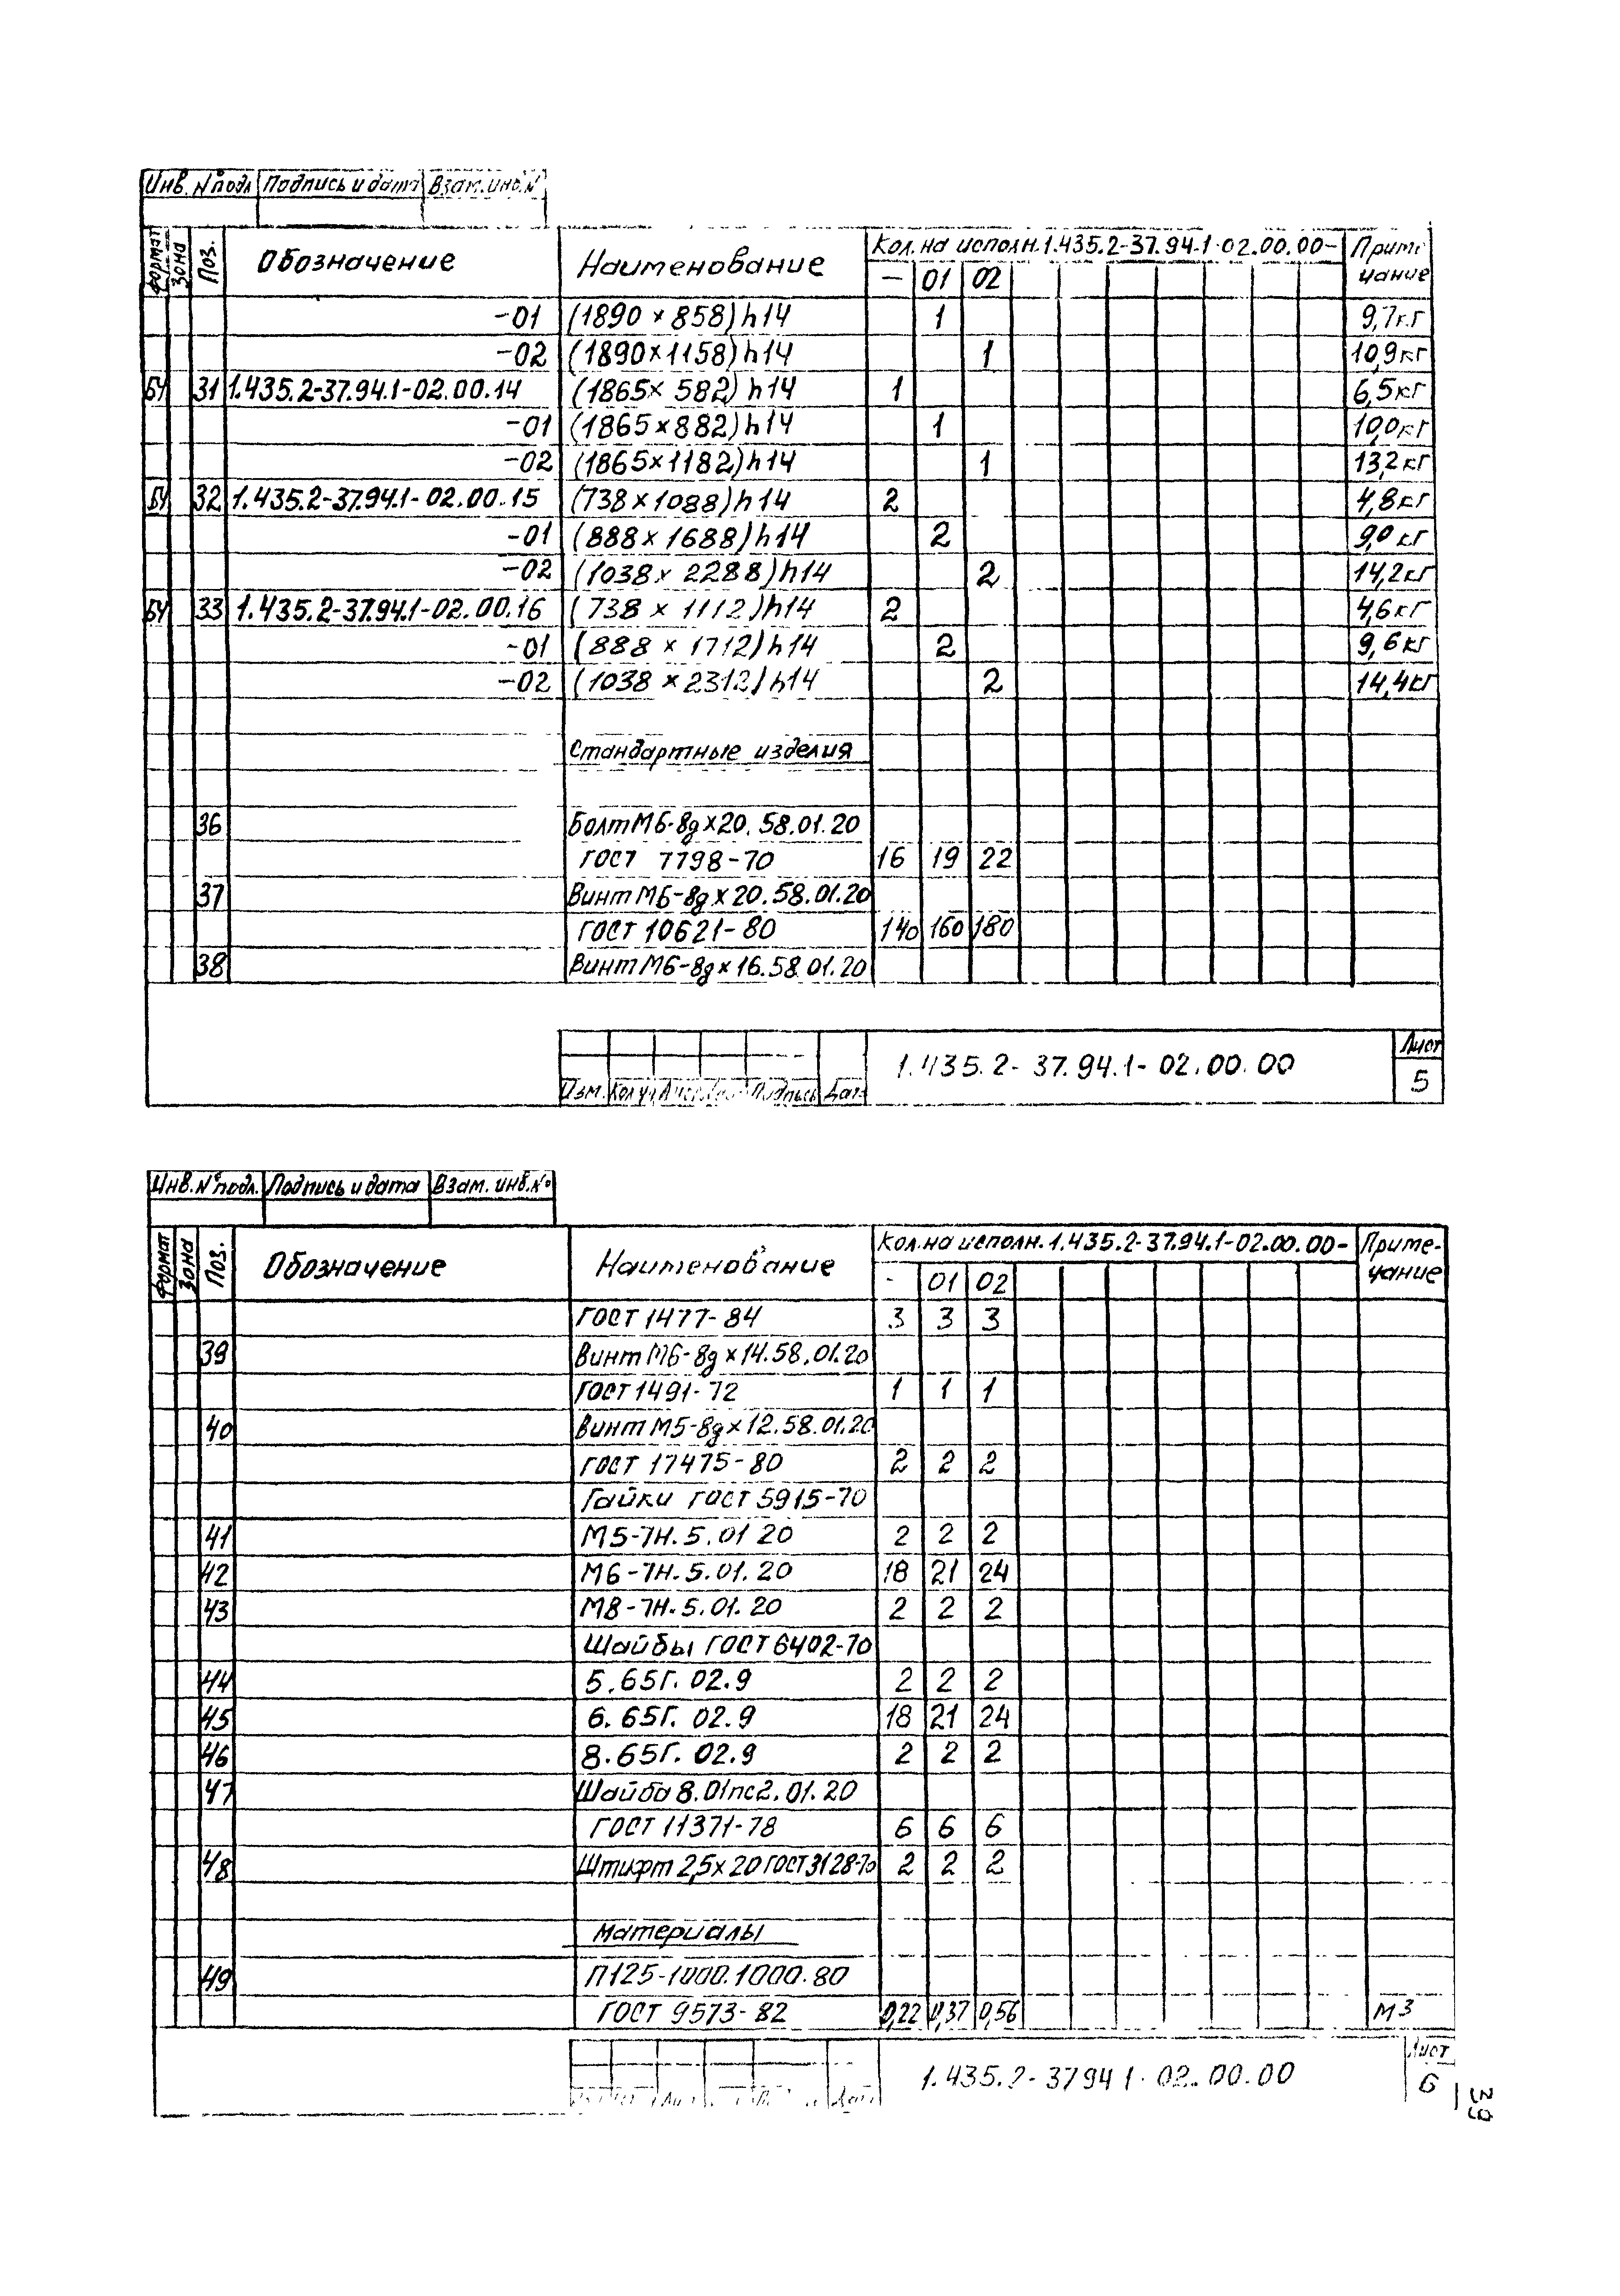 Инв. №подл Подпись и дата Взам.инв.№
формат зона Поз. Обозначение Наименование Кол.на исполн.1.435.2-37.94.1-02.00.00- Приме
- 01 02 чание
-01 (1890×858)h14 1 9,7кг
-02 (1890×1158)h14 1 10,9кг
БЧ 31 1.435.2-37.94.1-02.00.14 (1865×582)h14 1 6,5кг
-01 (1865×882)h14 1 10,0кг
-02 (1865×1182)h14 1 13,2кг
БЧ 32 1.435.2-37.94.1-02.00.15 (738×1088)h14 2 4,8кг
-01 (888×1688)h14 2 9,0кг
-02 (1038×2288)h14 2 14,2кг
БЧ 33 1.435.2-37.94.1-02.00.16 (738×1112)h14 2 4,6кг
-01 (888×1712)h14 2 9,6кг
-02 (1038×2312)h14 2 14,4кг
Стандартные изделия
36 Болт М6-8g×20.58.01.20
ГОСТ 7798-70 16 19 22
37 Винт М6-8g×20.58.01.20
ГОСТ 10621-80 140 160 180
38 Винт М6-8g×16.58.01.20
1.435.2-37.94.1-02.00.00 Лист
Изм. Кол.уч Подпись Дата 5
Инв.№подл. Подпись и дата Взам. инв.№
формат зона Поз. Обозначение Наименование Кол.на исполн.1.435.2-37.94.1-02.00.00- Приме-
- 01 02 чание
ГОСТ 1477-84 3 3 3
39 Винт М6-8g×14.58.01.20
ГОСТ 1491-72 1 1 1
40 Винт М5-8g×12.58.01.20
ГОСТ 17475-80 2 2 2
Гайки ГОСТ 5915-70
41 М5-7Н.5.01 20 2 2 2
42 М6-7Н.5.01.20 18 21 24
43 М8-7Н.5.01.20 2 2 2
Шайбы ГОСТ 6402-70
44 5.65Г.02.9 2 2 2
45 6.65Г.02.9 18 21 24
46 8.65Г.02.9 2 2 2
47 Шайба 8.01пс2.01.20
ГОСТ 11371-78 6 6 6
48 Штифт 2,5×20 ГОСТ 3128-70 2 2 2
Материалы
49 П125-1000.1000.80
ГОСТ 9573-82 0,22 0,37 0,56 м3
1.435.2-37941-02.00.00 Лист
Дат 6
39